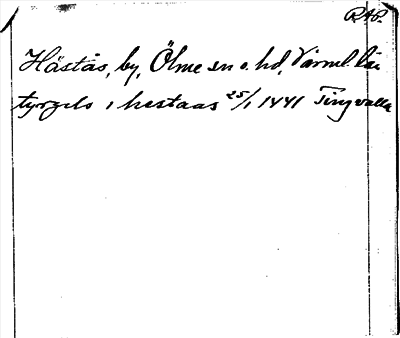 RAP.
Hästås, by, Ölme sn o. hd, Värml. län
tyrgels i hestaas 25/1 1441 Tingvalla